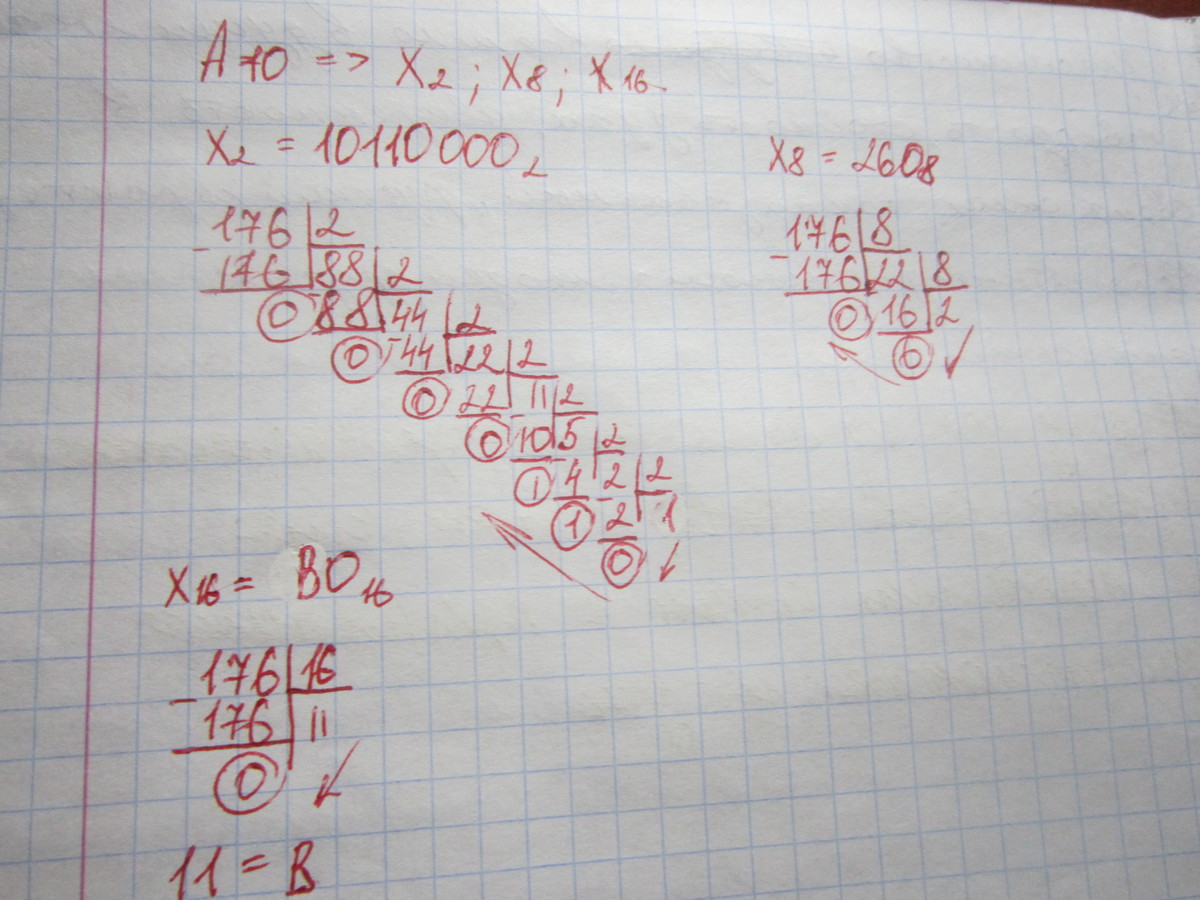 A10 => X2 ; X8 ; X16
X2 = 10110000₂
X8 = 260₈
176 | 2
- 176 | 88 | 2
0 - 88 | 44 | 2
0 - 44 | 22 | 2
0 22 | 11 | 2
0 - 10 | 5 | 2
1 - 4 | 2 | 2
1 - 2 | 1
0
176 | 8
- 176 | 22 | 8
0 16 | 2
6
X16 = B0₁₆
176 | 16
- 176 | 11
0
11 = B